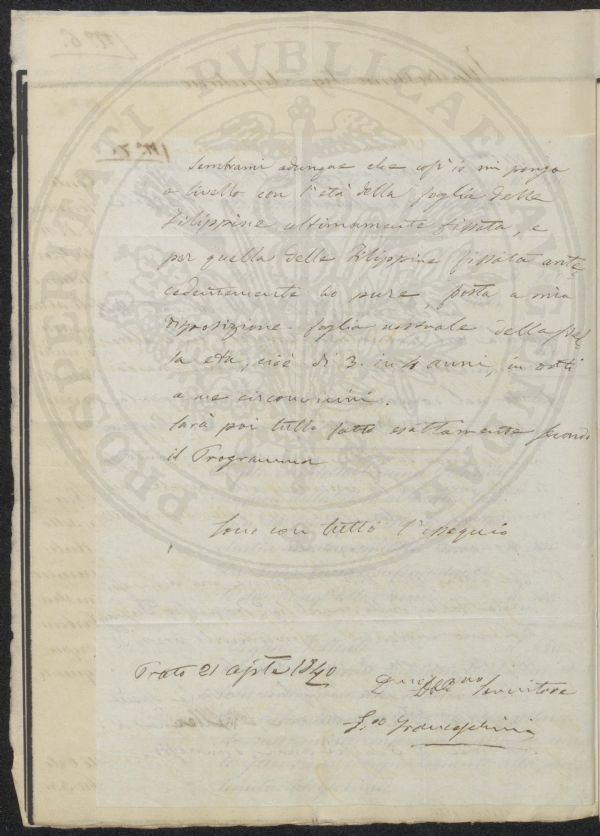 N.° 7.
Sembrami adunque che così io mi ponga
a livello con l'età della foglia della
Filippine ultimamente fissata, e
per quella delle Filippine fissata ante
cedentemente ho pure, posta a mia
disposizione foglia normale della stes
sa età, cioè di 3. in 4 anni, in orti
a me circonvicini.
Sarà poi tutto fatto esattamente secondo
il Programma
Sono con tutto l'ossequio
Prato 21 aple 1840
Servitore
F.co Franceschini
PROSPERITATI PVBLICAE AVGENDAE